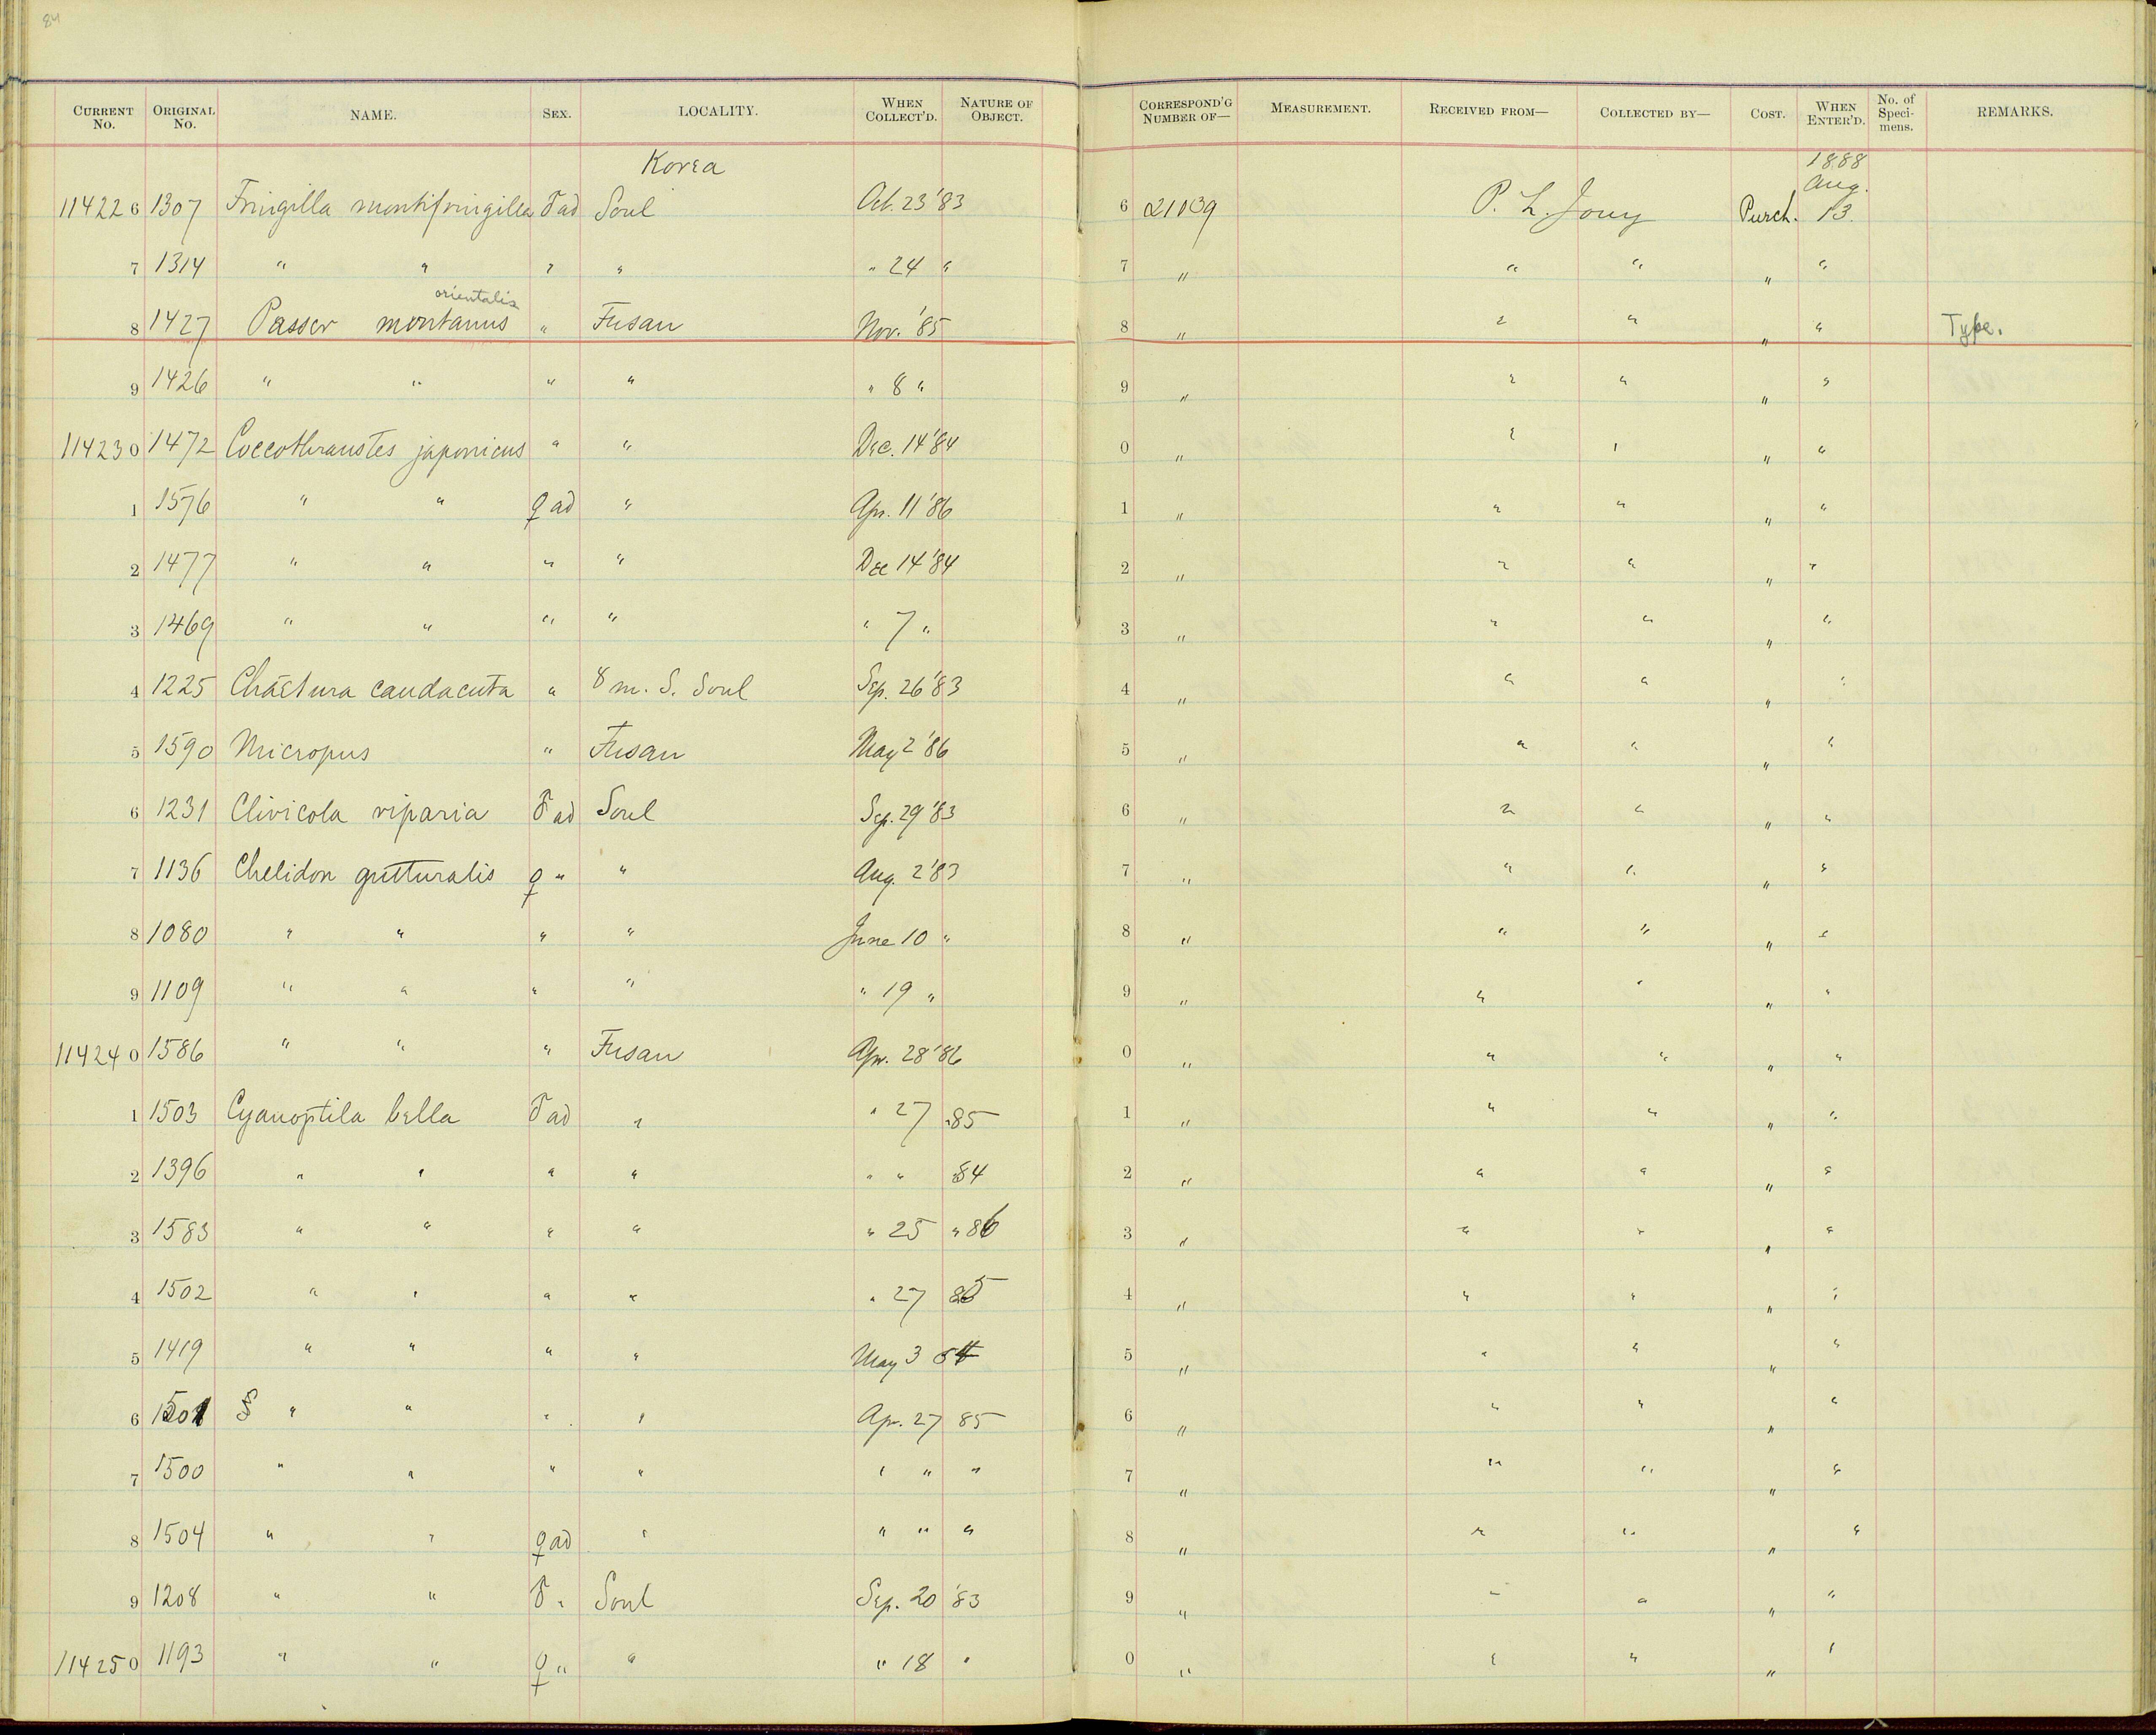 84
CURRENT No. ORIGINAL No. NAME. SEX. LOCALITY. WHEN COLLECT'D. NATURE OF OBJECT. CORRESPOND'G NUMBER OF— MEASUREMENT. RECEIVED FROM— COLLECTED BY— COST. WHEN ENTER'D. No. of Specimens. REMARKS.
Korea 1888 Aug.
114226 1307 Fringilla montifringilla ♂ ad Soul Oct. 23 '83 6 21039 P. L. Jouy Purch. 13.
7 1314 " " " " " 24 " 7 " " " " "
orientalis
8 1427 Passer montanus " Fusan Nov. '85 8 " " " " " Type.
9 1426 " " " " " 8 " 9 " " " " "
114230 1472 Coccothraustes japonicus " " Dec. 14 '84 0 " " " " "
1 1576 " " ♀ ad " Apr. 11 '86 1 " " " " "
2 1477 " " " " Dec 14 '84 2 " " " " "
3 1469 " " " " " 7 " 3 " " " " "
4 1225 Chaetura caudacuta " 8 m. S. Soul Sep. 26 '83 4 " " " " "
5 1590 Micropus " Fusan May 2 '86 5 " " " " "
6 1231 Clivicola riparia ♂ ad Soul Sep. 29 '83 6 " " " " "
7 1136 Chelidon gutturalis ♀ " " Aug. 2 '83 7 " " " " "
8 1080 " " " " June 10 " 8 " " " " "
9 1109 " " " " " 19 " 9 " " " " "
114240 1586 " " " Fusan Apr. 28 '86 0 " " " " "
1 1503 Cyanoptila bella ♂ ad " " 27 "85 1 " " " " "
2 1396 " " " " " " 84 2 " " " " "
3 1583 " " " " " 25 "86 3 " " " " "
4 1502 " " " " " 27 85 4 " " " " "
5 1419 " " " " May 3 84 5 " " " " "
6 1501 " " " " Apr. 27 85 6 " " " " "
7 1500 " " " " " " " 7 " " " " "
8 1504 " " ♀ ad " " " " 8 " " " " "
9 1208 " " ♂ " Soul Sep. 20 '83 9 " " " " "
114250 1193 " " ♀ " " " 18 " 0 " " " " "